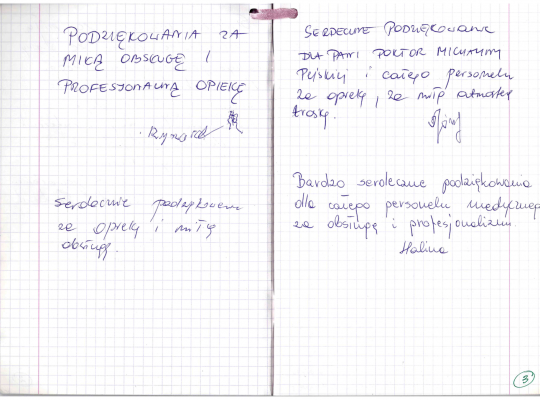 PODZIĘKOWANIA ZA
MIŁĄ OBSŁUGĘ I
PROFESJONALNĄ OPIEKĘ
Ryszard
serdecznie podziękowania
za opiekę i miłą
obsługę.
SERDECZNE PODZIĘKOWANIE
DLA PANI DOKTOR MICHALINY
i całego personelu
za opiekę, za miłą atmosferę
troskę.
Bardzo serdeczne podziękowania
dla całego personelu medycznego
za obsługę i profesjonalizm.
Halina
3